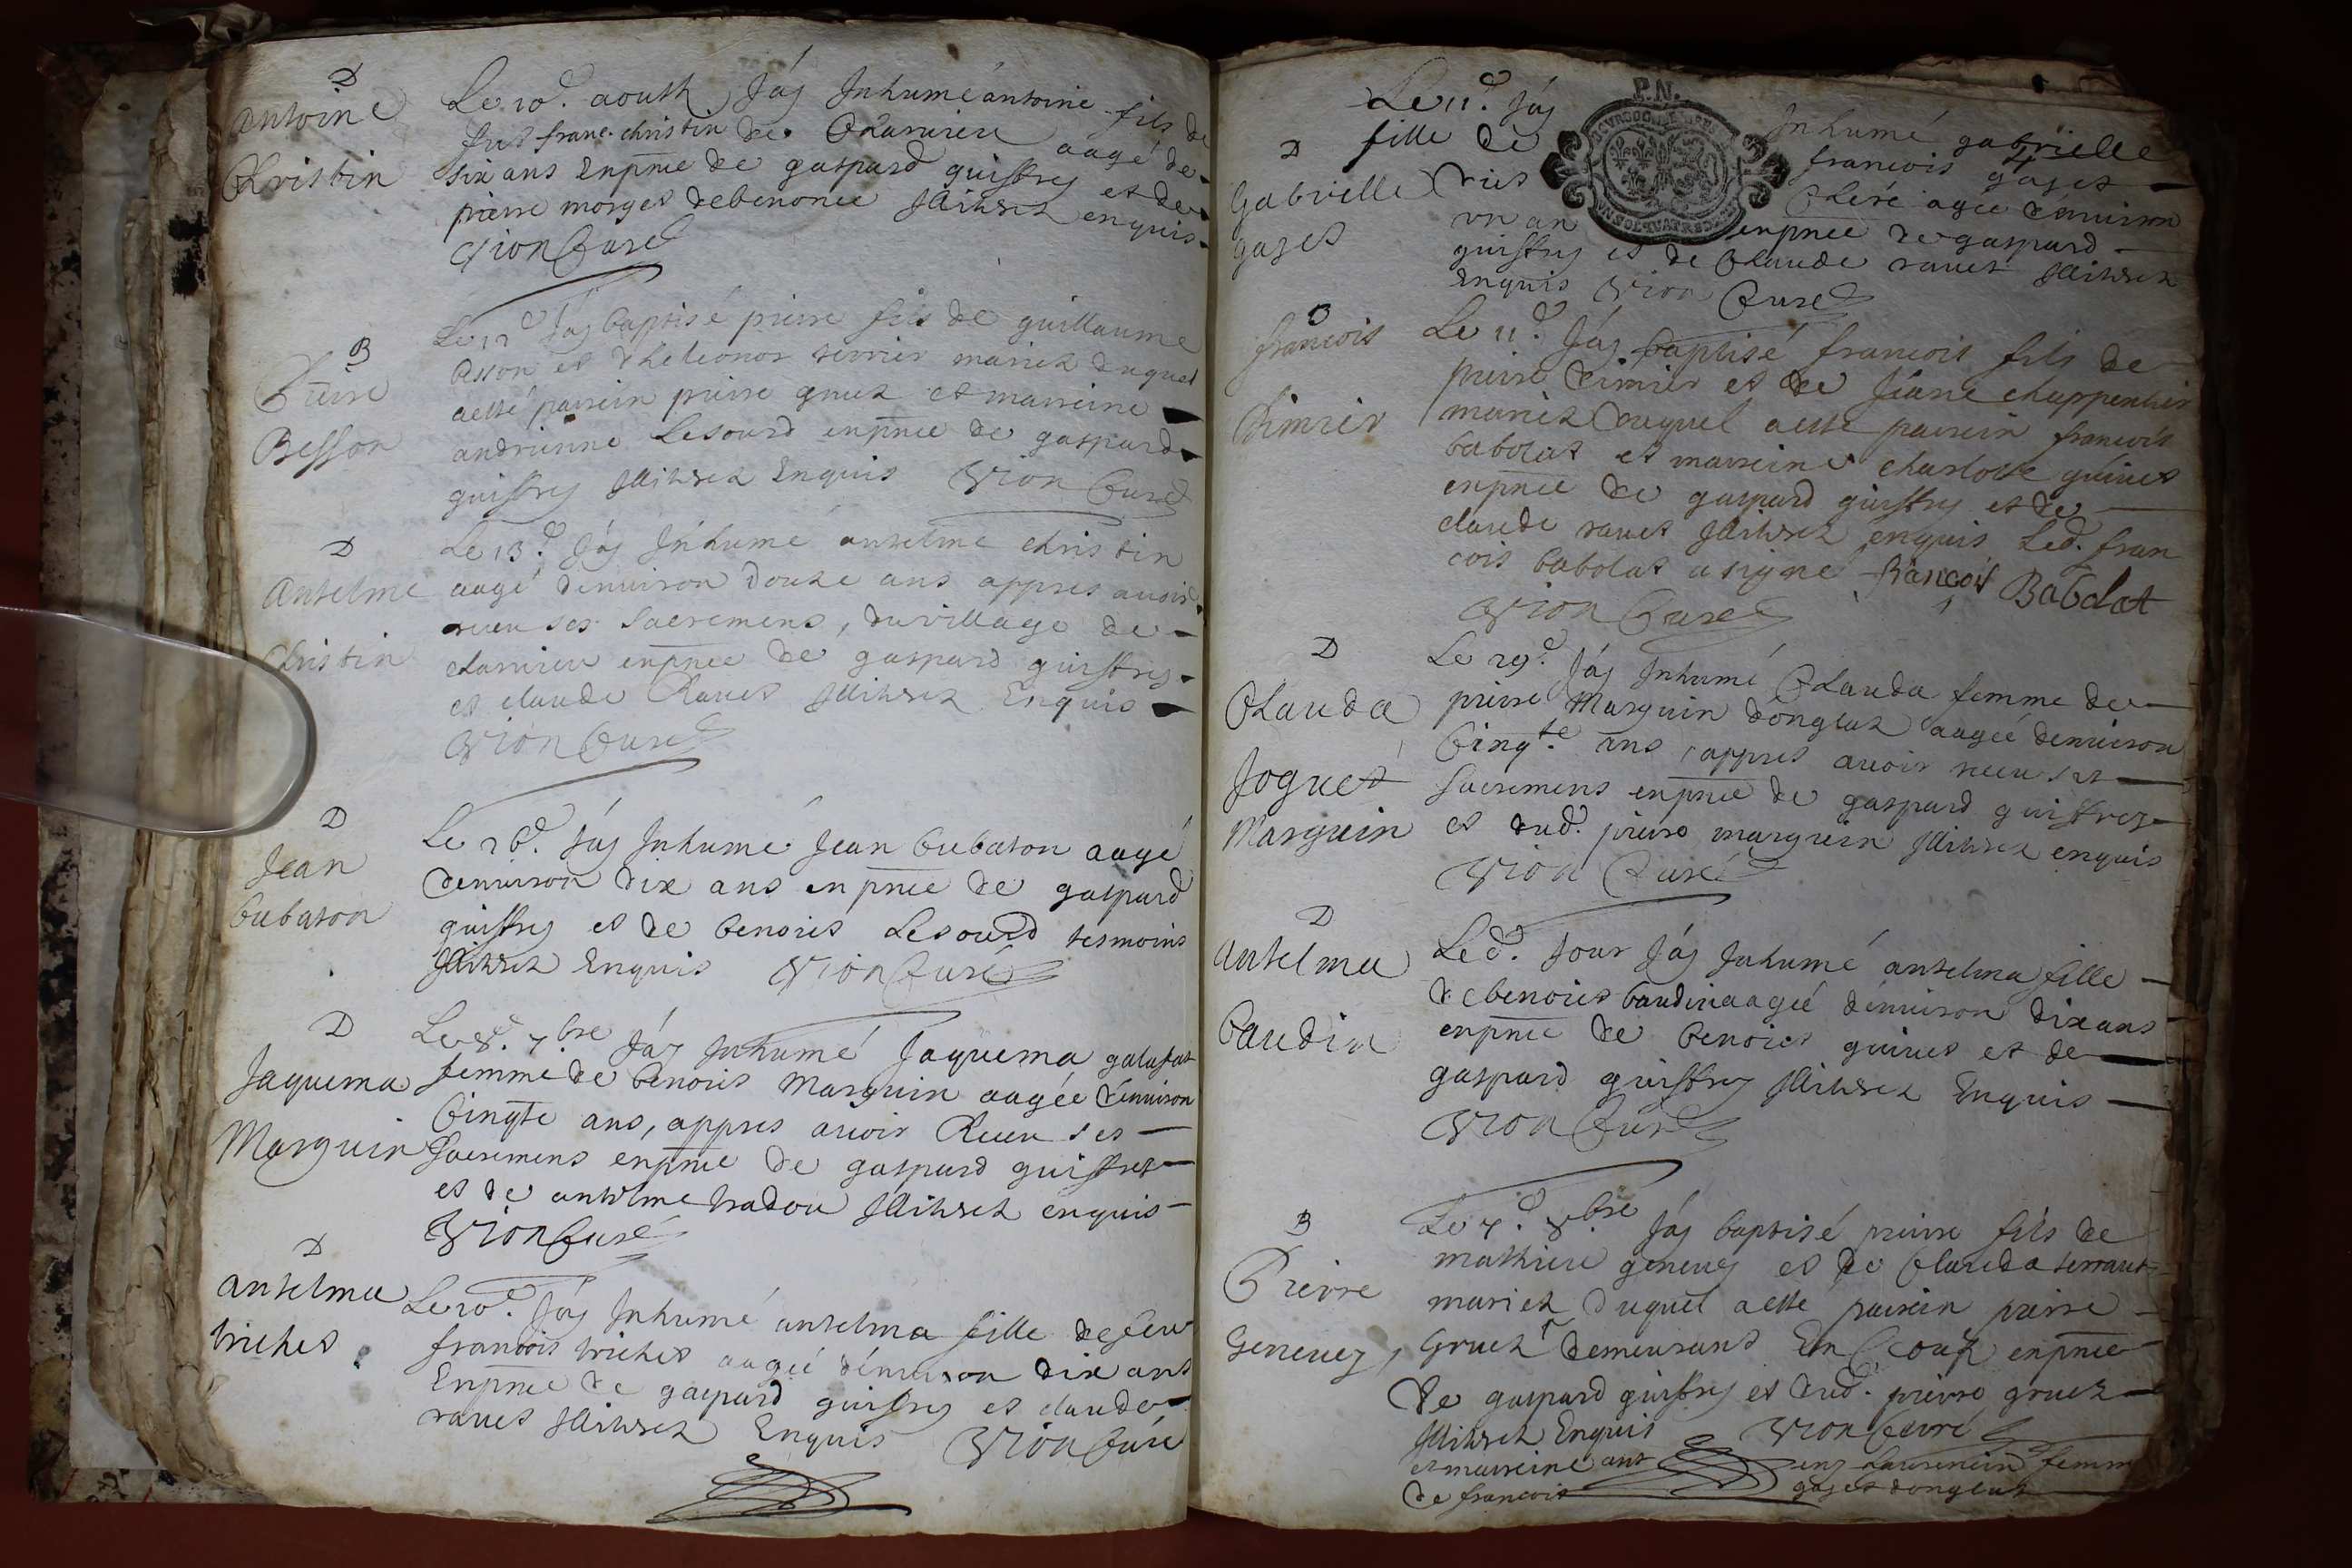 D
Antoine
Christin
Le 10e. aousth Jáy Inhumé antoine fils de
feu franc. christin de Chamieu aagé de
six ans Enpnce de gaspard guiffrey et de
pierre morges debenonce Illitérez enquis
Vion Curé
B
Pierre
Besson
Le 12e Jay baptisé pierre fils de guillaume
Besson et dheleonor terrier mariez duquel
aesté parrein pierre gruez et marreine
andrienne Lesourd enpnce de gaspard
guiffrey Illitérez Enquis Vion Curé
D
Antelme
Christin
Le 13e. Jáy Inhumé antelme christin
aagé denuiron douze ans appres auoir
receu ses Sacremens, du village de
chamieu enpnce de gaspard guiffrey
et claude Rauet Illitérez Enquis
Vion Curé
D
Jean
Cubaton
Le 26e. Jáy Inhumé Jean Cubaton aagé
denuiron dix ans en pnce de gaspard
guiffrey et de benoict Lesourd tesmoins
Illitérez Enquis Vion Curé
D
Jaquema
Marguin
Le 8e. 7.bre Jáy Inhumé Jaquema galafat
femme de benoict Marguin aagée dénuiron
Cinqte ans, appres auoir Receu ses
Sacremens enpnce de gaspard guiffrey
et de antelme tradou Illitérez enquis
Vion Curé
D
antelma
trichet
Le 10e. Jáy Inhumé antelma fille de feu
francois trichet aagée dénuiron dix ans
Enpnce de gaspard guiffrey et claude
rauet Illitérez Enquis Vion Curé
P.N.
D
Gabrielle
gaget
Le 11e. Jáy Inhumé gabrielle
fille de francois gaget
un an enpnce de gaspard
guiffrey et de Claude rauet Illitérez
Enquis Vion Curé
francois
Dimier
Le 11e. Jáy baptisé francois fils de
pierre Dimier et de Jeane chappentier
mariez duquel aesté parrein francois
babolat et marreine charlotte guinet
enpnce de gaspard guiffrey et de
claude rauet Illitérez enquis Led. fran
cois babolat a signé françois Babolat
Vion Curé
D
Clauda
Joguet
Marguin
Le 29e. Jáy Inhumé Clauda femme de
pierre Marguin donglas aagée denuiron
Cinqte. ans, appres auoir receu ses
Sacremens enpnce de gaspard guiffrey
et dud. pierre marguin Illitérez enquis
Vion Curé
D
Antelma
Baudin
Led. Jour Jáy Inhumé antelma fille
de benoict baudin aagée dénuiron dix ans
enpnce de benoict guinet et de
gaspard guiffrey Illitérez Enquis
Vion Curé
B
Pierre
Geneuey
Le 7e. 8bre Jáy baptisé pierre fils de
mathieu geneuey et de Clauda
mariez duquel aesté parrein pierre
Gruez demeurand En enpnce
de gaspard guiffrey et dud. pierre gruez
Illitérez Enquis Vion Curé
et marreine femme
de francois gaget donglas